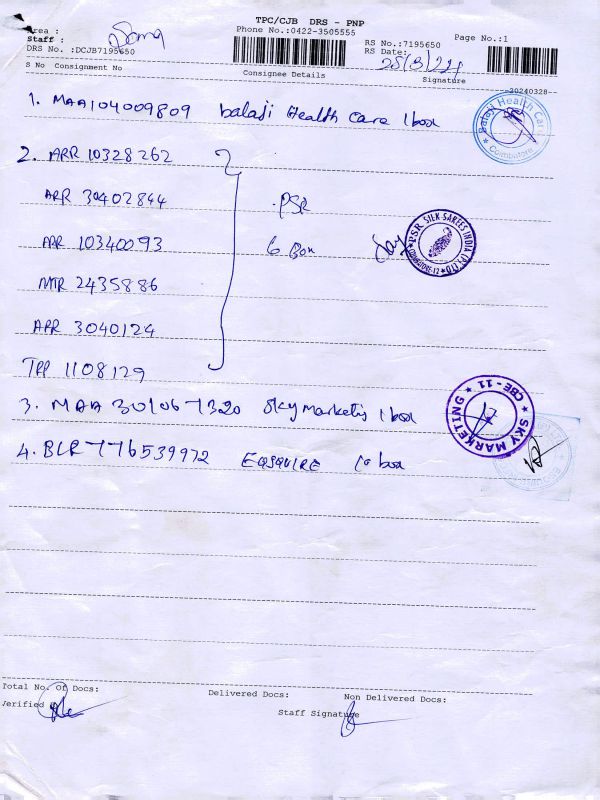 TPC/CJB DRS - PNP
Area :
Phone No.:0422-3505555
Staff :
RS No.:7195650
Page No.:1
DRS No. :DCJB7195650
RS Date:
S No Consignment No
Consignee Details
Signature
-20240328-
1. MAA104009809 balaji Health Care 1 box
Balaji Health Care
Coimbatore
2. ARR 10328262
ARR 30402844 PSR
PSR SILK SAREES INDIA (P) LTD
COIMBATORE-12
ARR 10340093 6 Box
MTR 2435886
ARR 3040124
TPP 1108129
3. MAA 301067320 Sky Marketing 1 box
SKY MARKETING
CBE - 11
4. BLR 776539972 EQSQUIRE 10 box
Total No. Of Docs:
Delivered Docs:
Non Delivered Docs:
Verified
Staff Signature